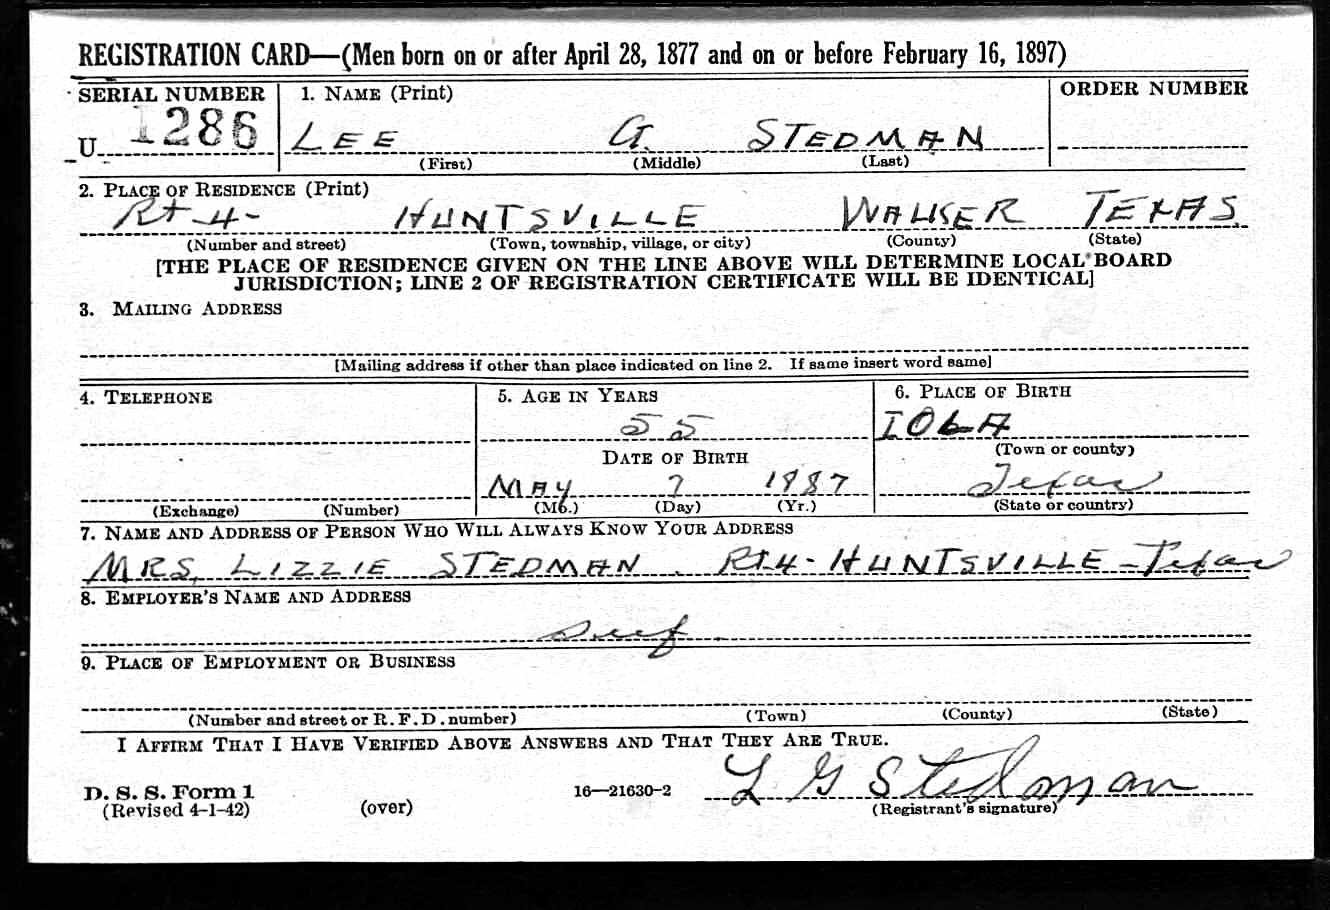 REGISTRATION CARD—(Men born on or after April 28, 1877 and on or before February 16, 1897)
SERIAL NUMBER 1. NAME (Print) ORDER NUMBER
U 1286 LEE G. STEDMAN
(First) (Middle) (Last)
2. PLACE OF RESIDENCE (Print)
Rt-4- HUNTSVILLE WALKER TEXAS
(Number and street) (Town, township, village, or city) (County) (State)
[THE PLACE OF RESIDENCE GIVEN ON THE LINE ABOVE WILL DETERMINE LOCAL BOARD
JURISDICTION; LINE 2 OF REGISTRATION CERTIFICATE WILL BE IDENTICAL]
3. MAILING ADDRESS
[Mailing address if other than place indicated on line 2. If same insert word same]
4. TELEPHONE 5. AGE IN YEARS 6. PLACE OF BIRTH
55 IOLA
(Town or county)
DATE OF BIRTH
MAY 7 1887 Texas
(Exchange) (Number) (Mo.) (Day) (Yr.) (State or country)
7. NAME AND ADDRESS OF PERSON WHO WILL ALWAYS KNOW YOUR ADDRESS
MRS. LIZZIE STEDMAN. Rt4-HUNTSVILLE-Texas
8. EMPLOYER'S NAME AND ADDRESS
Self.
9. PLACE OF EMPLOYMENT OR BUSINESS
(Number and street or R. F. D. number) (Town) (County) (State)
I AFFIRM THAT I HAVE VERIFIED ABOVE ANSWERS AND THAT THEY ARE TRUE.
L G Stedman
D. S. S. Form 1 16—21630-2
(Revised 4-1-42) (over) (Registrant's signature)